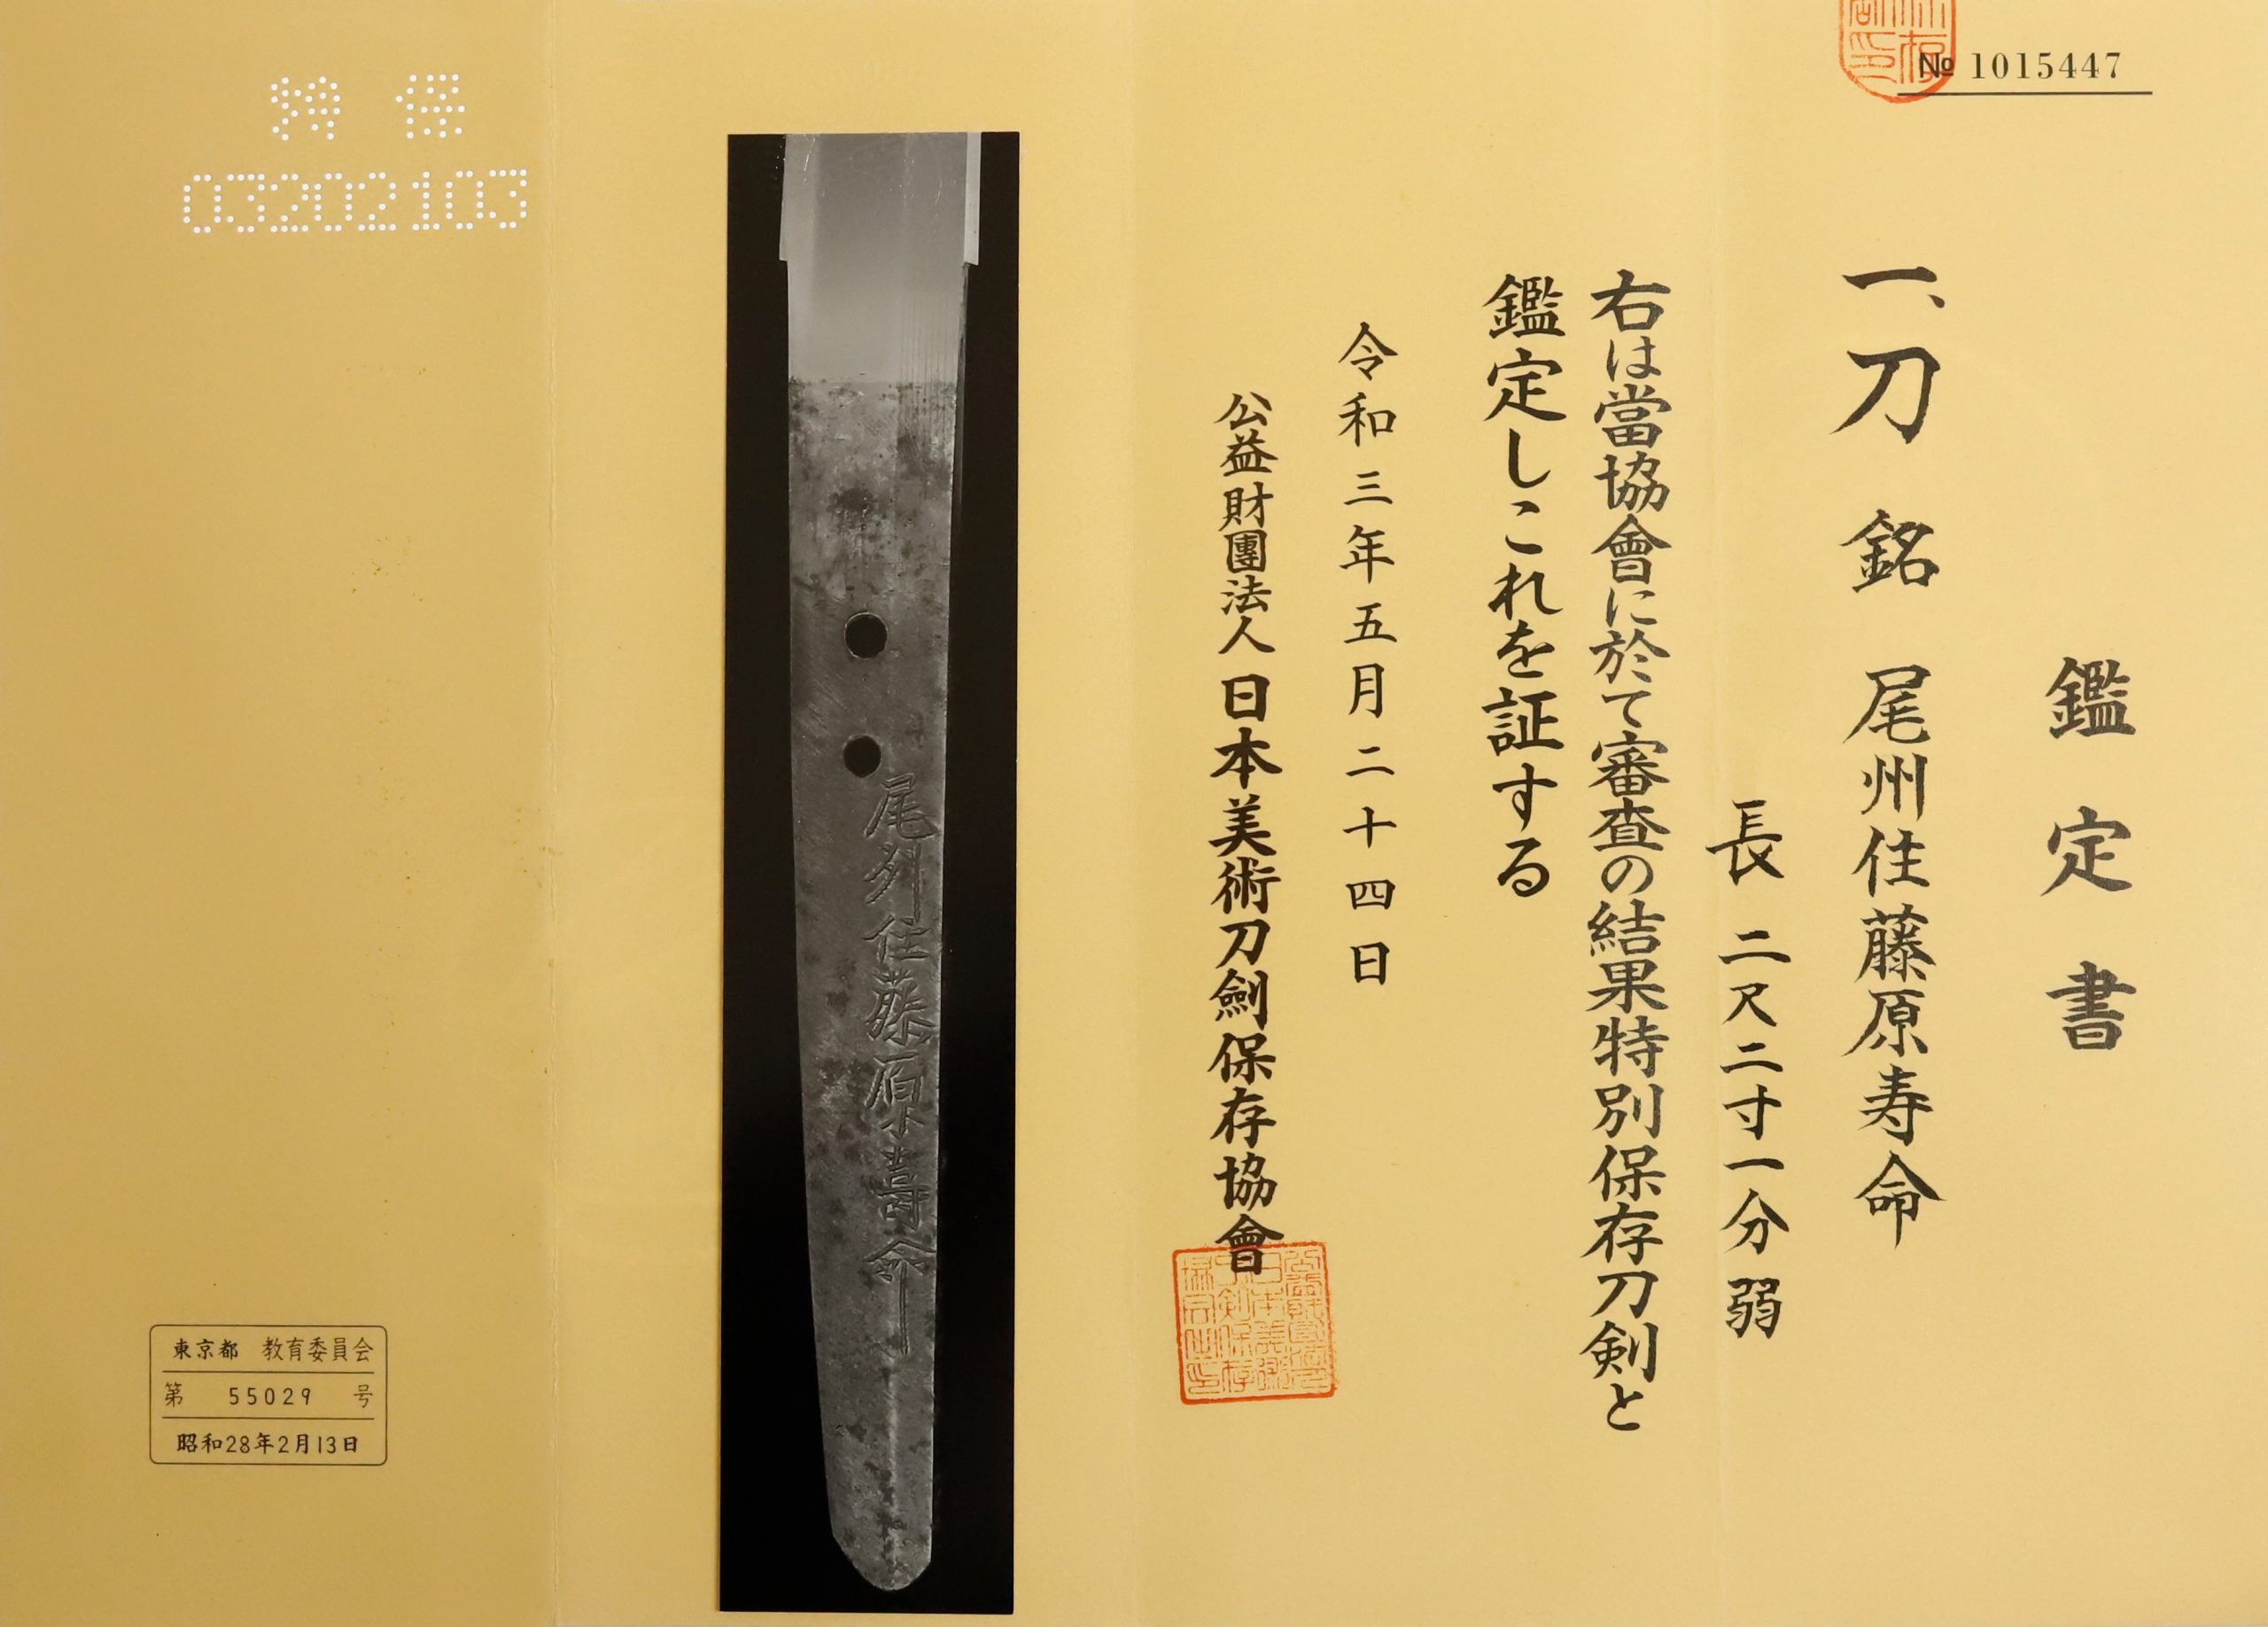 № 1015447
鑑定書
一、刀 銘 尾州住藤原寿命
長 二尺二寸一分弱
右は當協會に於て審査の結果特別保存刀剣と
鑑定しこれを証する
令和三年五月二十四日
公益財團法人 日本美術刀劍保存協會
尾州住藤原壽命
特保
03202103
東京都 教育委員会
第 55029 号
昭和28年2月13日